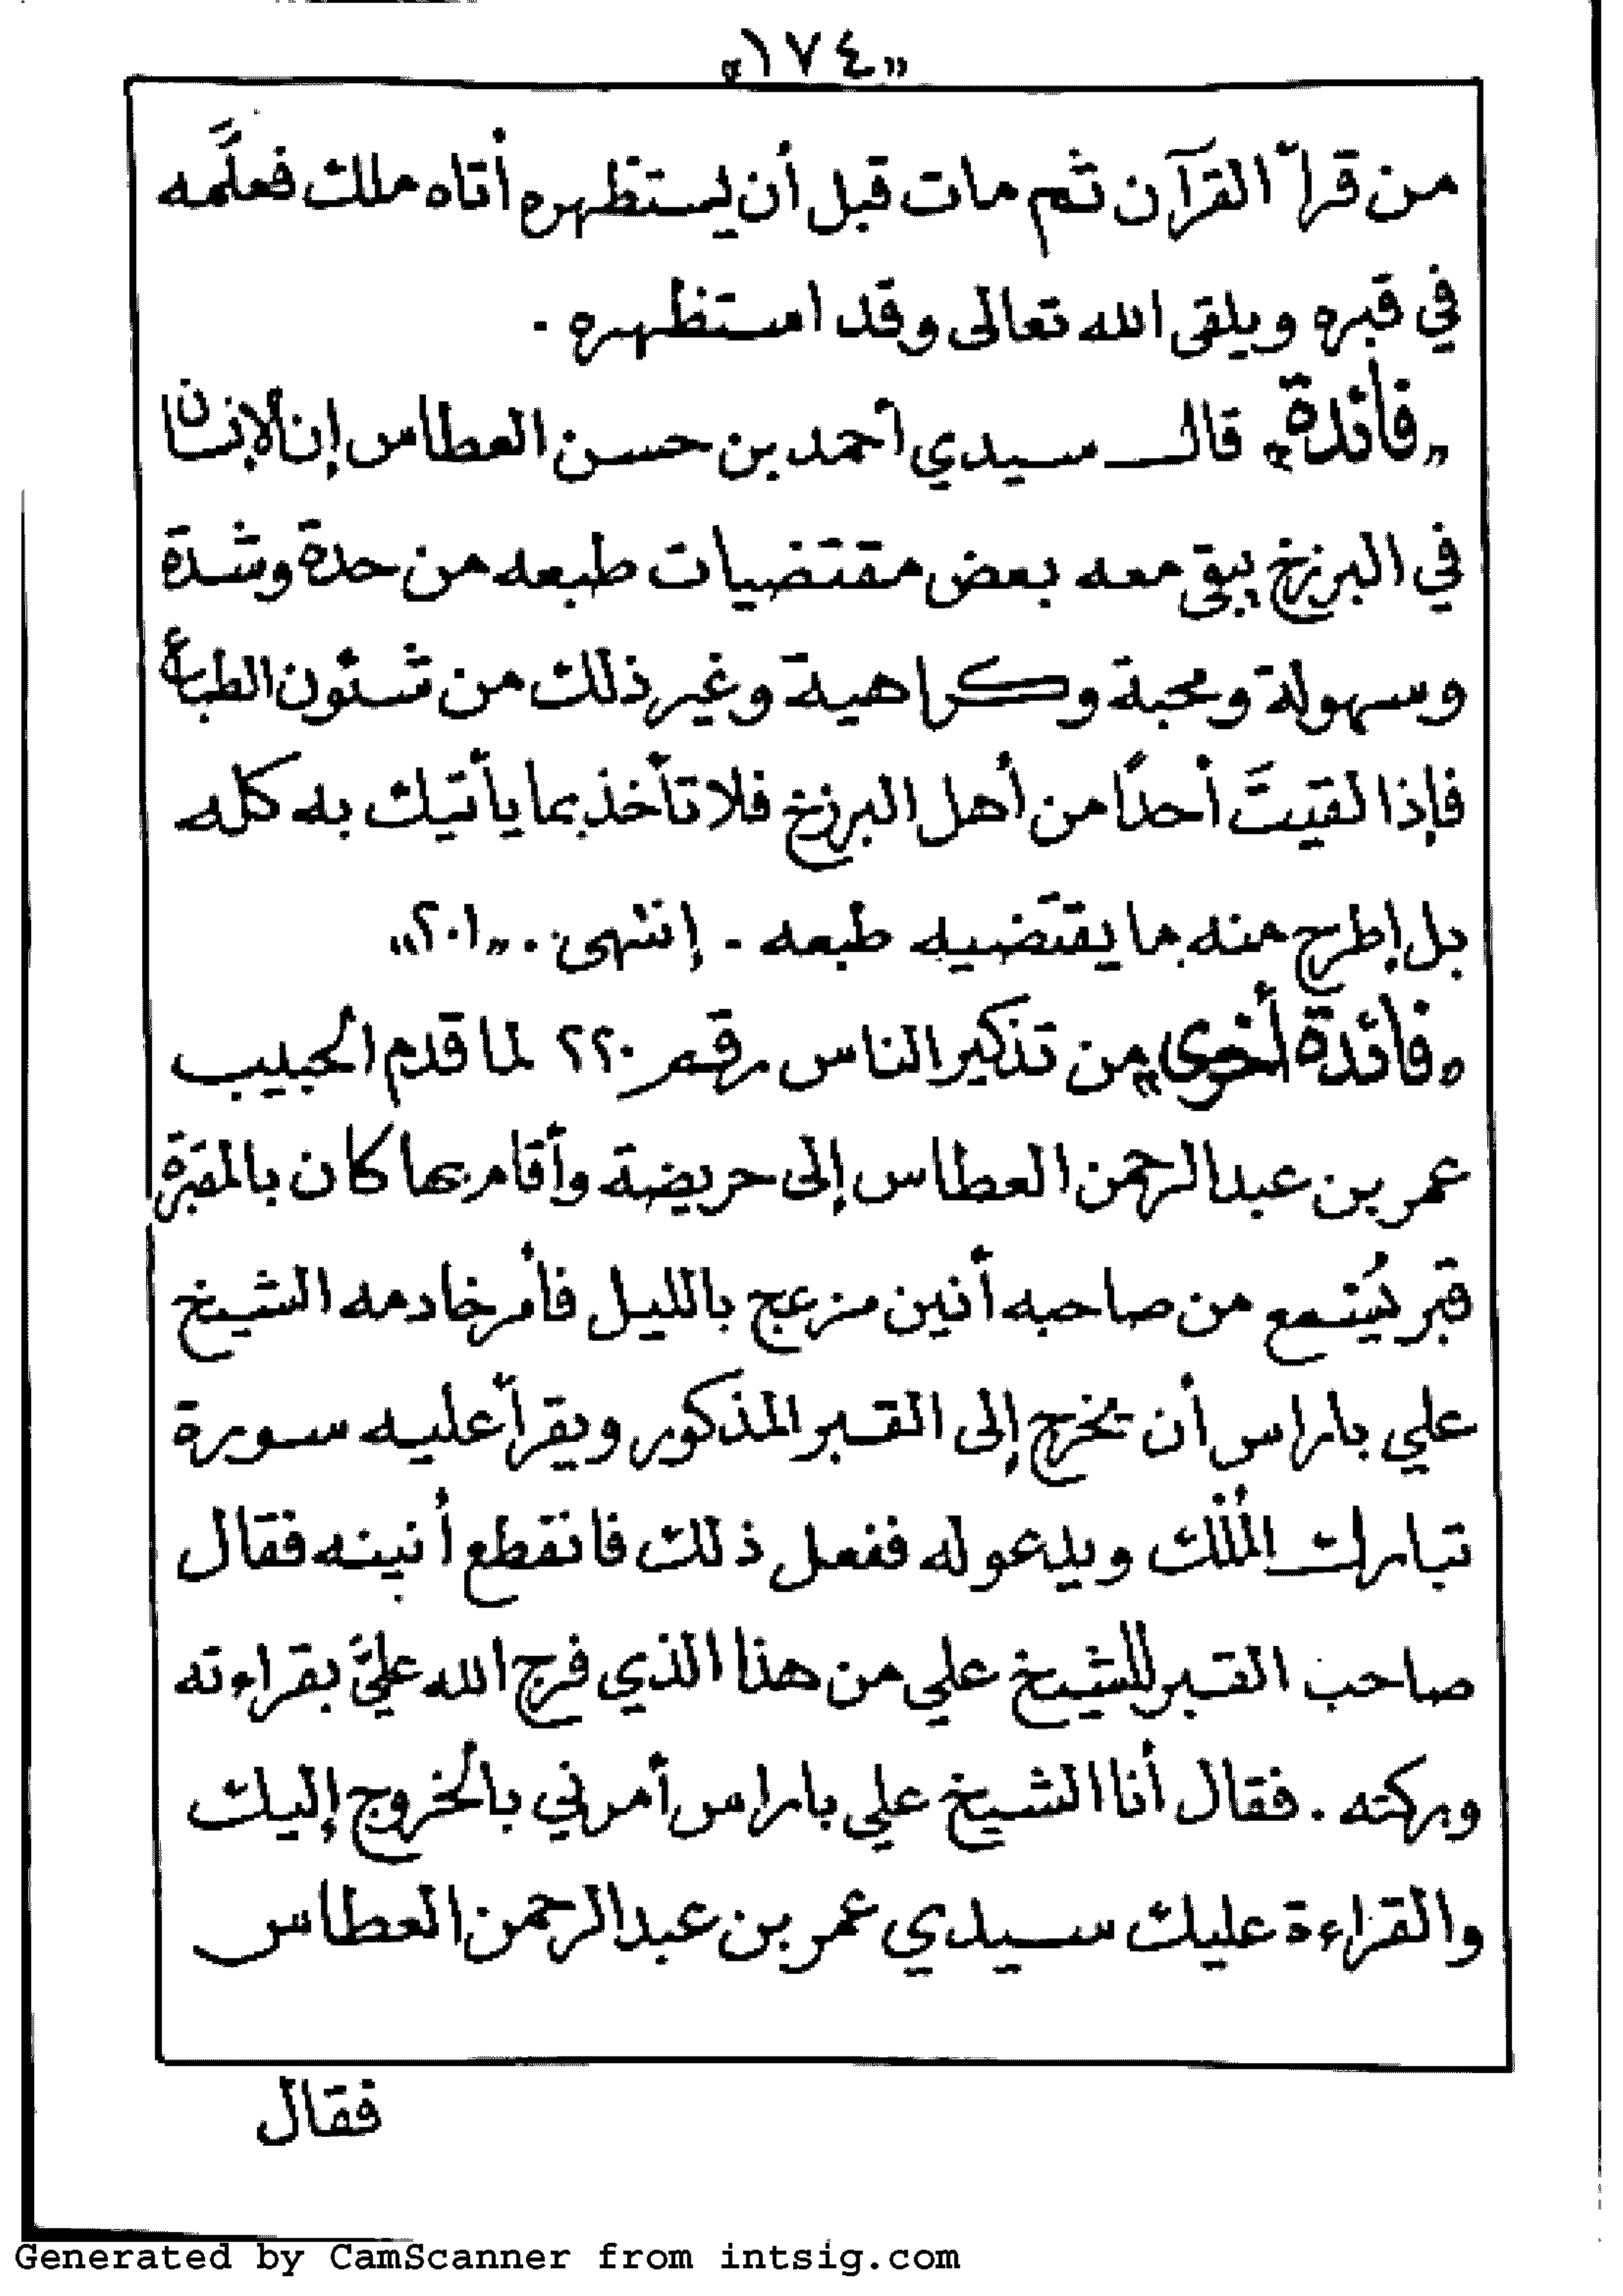 «١٧٤»
من قرأ القرآن ثم مات قبل أن يستظهره أتاه ملك فعلَّمه
في قبره ويلقى الله تعالى وقد استظهره .
«فائدة» قال سيدي أحمد بن حسن العطاس إن الإنسان
في البرزخ يبقى معه بعض مقتضيات طبعه من حدة وشدة
وسهولة ومحبة وكراهية وغير ذلك من شئون الطباع
فإذا لقيتَ أحدًا من أهل البرزخ فلا تأخذ بما يأتيك به كله
بل إطرح منه ما يقتضيه طبعه - إنتهى . «٢٠١»
«فائدة أخرى» من تذكير الناس رقم ٢٢٠ لما قدم الحبيب
عمر بن عبدالرحمن العطاس إلى حريضة وأقام بها كان بالمقبرة
قبر يُستمع من صاحبه أنين مزعج بالليل فأمر خادمه الشيخ
علي باراس أن يخرج إلى القبر المذكور ويقرأ عليه سورة
تبارك المُلك ويدعو له ففعل ذلك فانقطع أنينه فقال
صاحب القبر للشيخ علي من هذا الذي فرج الله عليَّ بقراءته
وبركته . فقال أنا الشيخ علي باراس أمرني بالخروج إليك
والقراءة عليك سيدي عمر بن عبدالرحمن العطاس
فقال
Generated by CamScanner from intsig.com